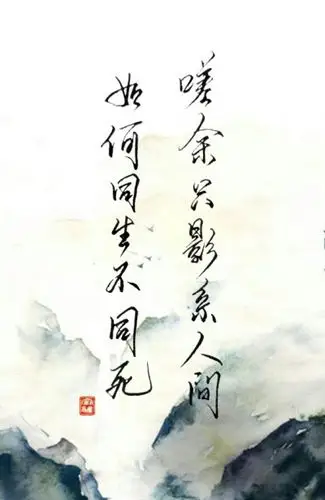 嗟余只影系人间
如何同生不同死